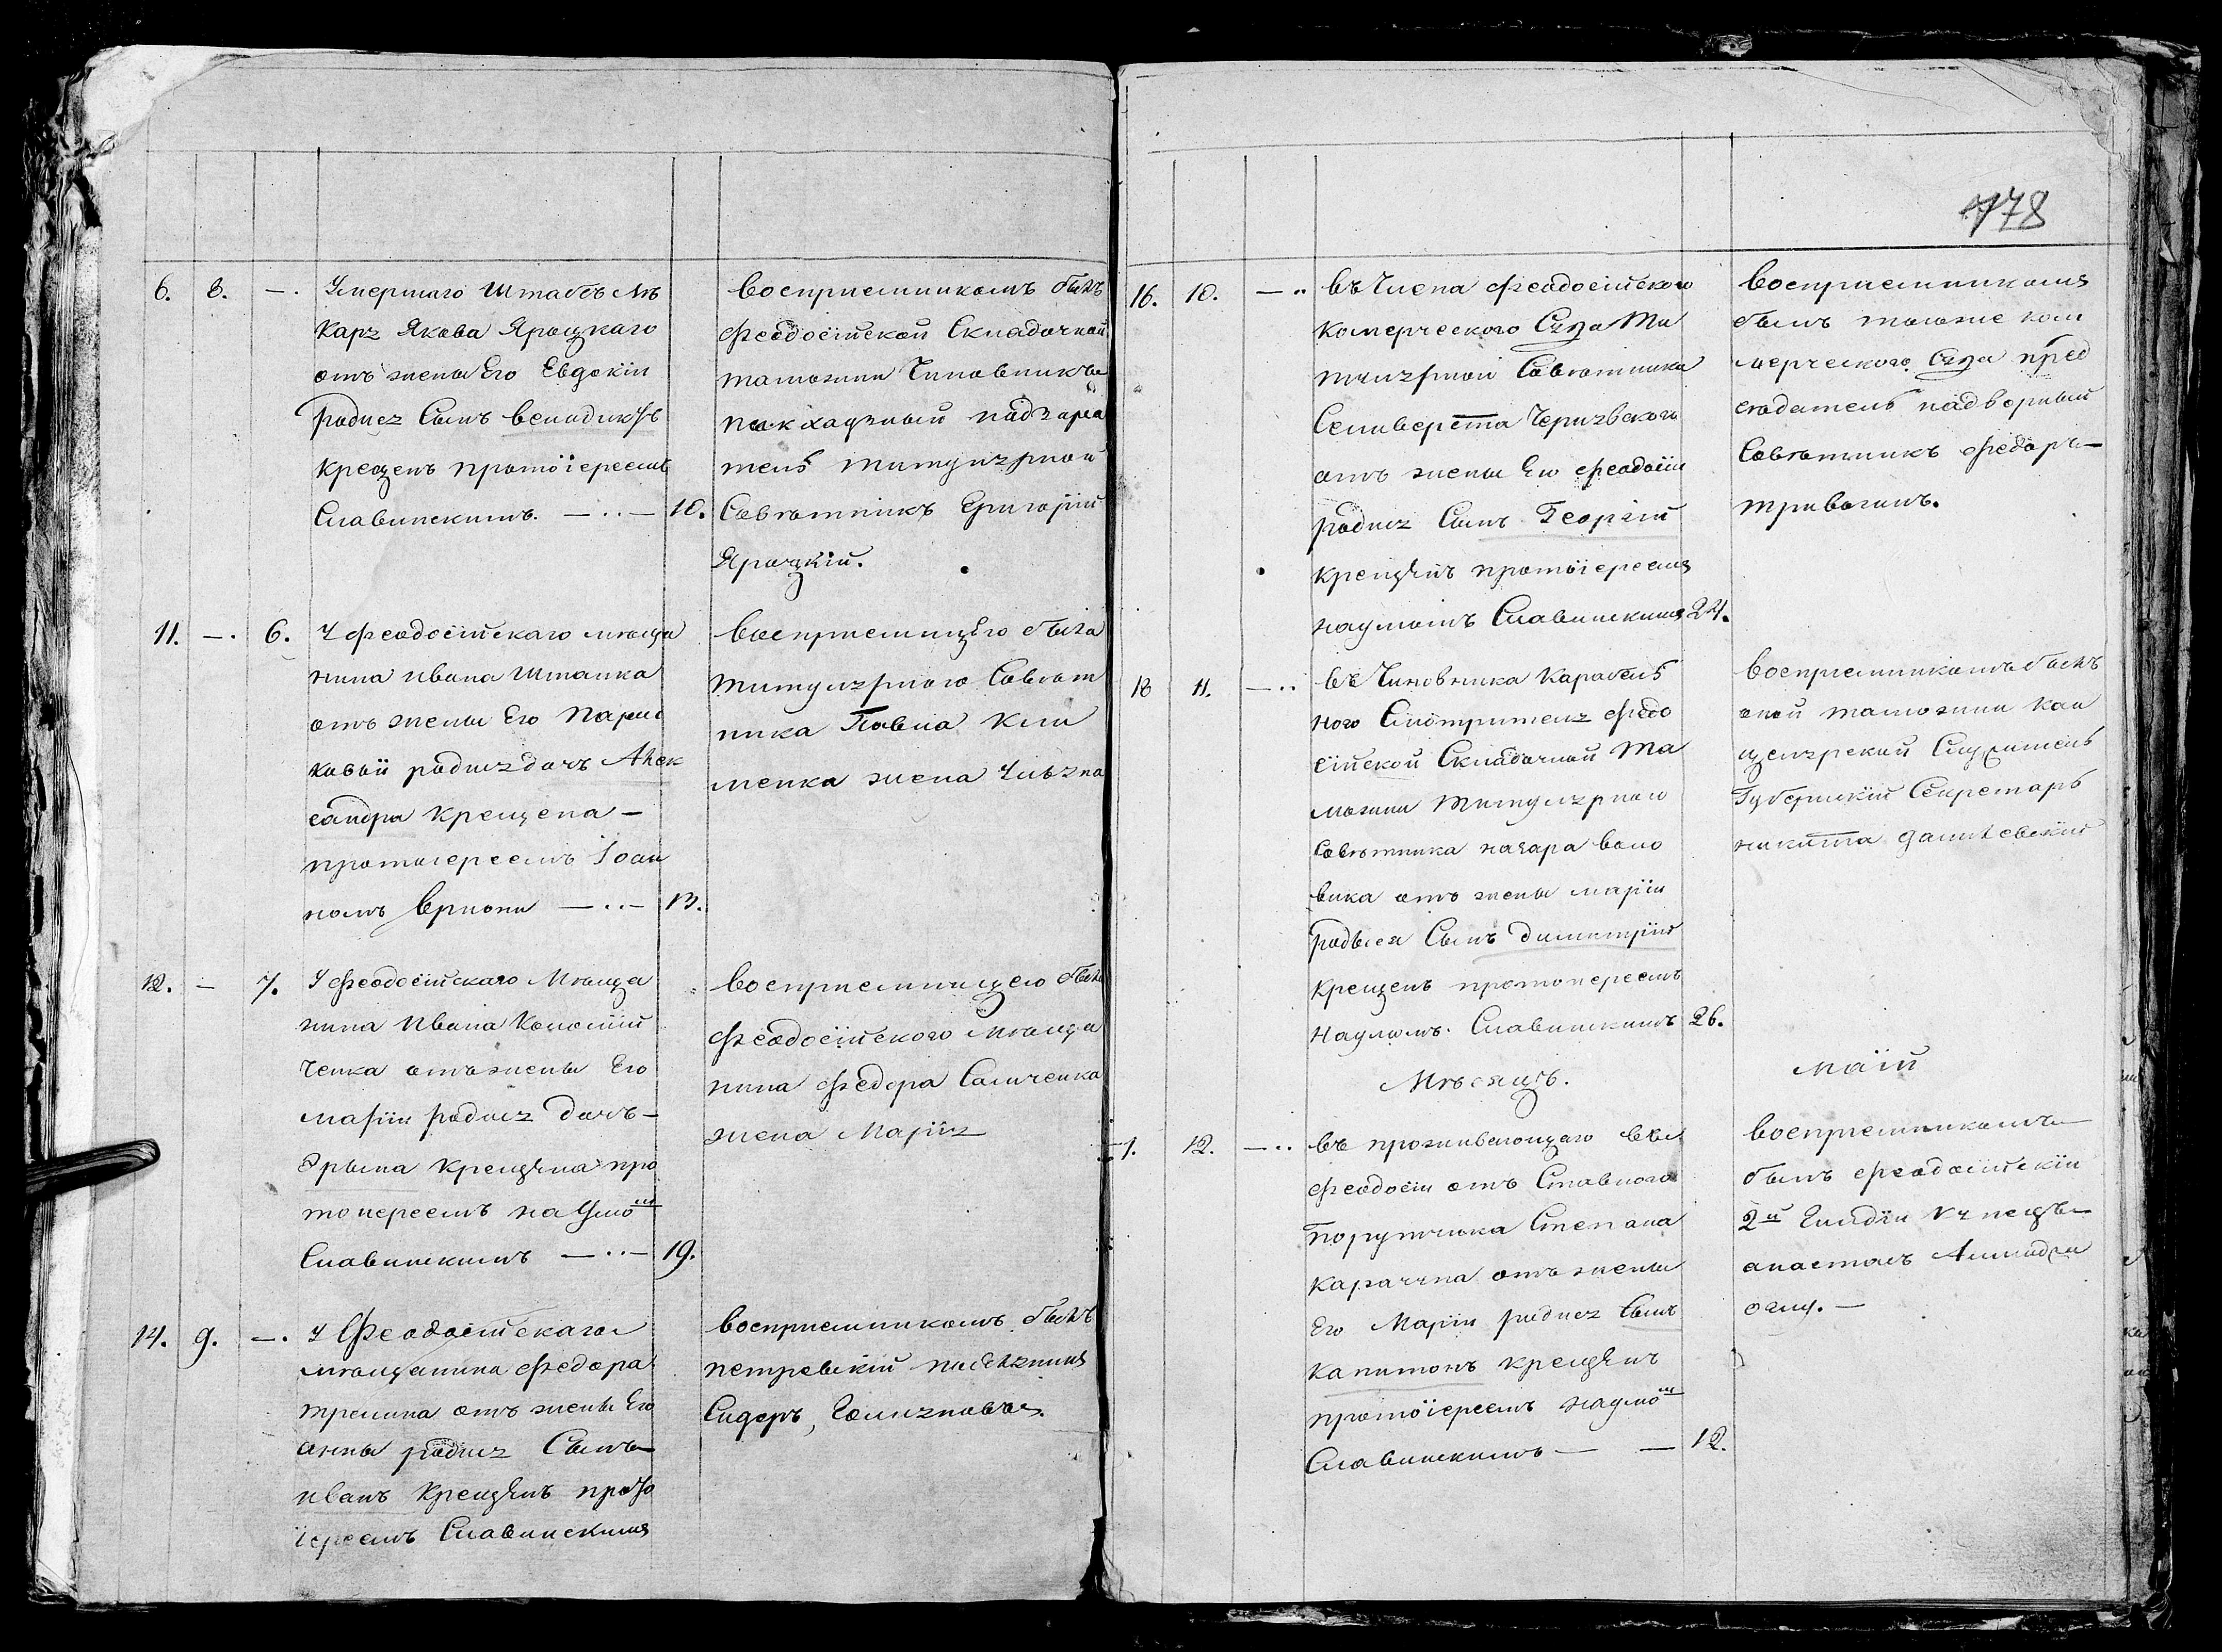 778
6. 8. —. Умершаго Штабъ лѣ
каря Якова Яроцкаго
отъ жены Его Евдокіи
родился Сынъ Венедиктъ
крещенъ протоіереемъ
Славинскимъ. — 10.
Воспріемникомъ былъ
Феодосійской Складочной
таможни Чиновникъ
надзира
тель титулярной
Совѣтникъ Григорій
Яроцкій.
11. —. 6. У Феодосійскаго мѣща
нина Ивана Штанка
отъ жены Его Парас
ковіи родилъ дочь Алек
сандра крещена —
протоиереемъ Іоан
номъ — 13.
Воспріемницею была
титулярнаго Совѣт
ника Павла Кли
менка жена Ульяна
12. — 7. У Феодосійскаго Мѣща
нина Ивана Коломій
ченка отъ жены Его
Маріи родилъ дочь —
Ирына крещена про
тоиереемъ Наумомъ
Славинскимъ — 19.
Воспріемницею была
Феодосійского Мѣща
нина Федора Самченка
жена Марія
14. 9. —. У Феодосійскаго
мѣщанина Федора
отъ жены Его
Анны родилъ Сынъ
Иванъ крещенъ прото
іереемъ Славинскимъ
Воспріемникомъ былъ
Сидоръ,
16. 10. — въ Члена Феодосійского
Комерческого Суда Ти
тулярной Совѣтника
отъ жены Его Феодосіи
родился Сынъ Георгій
крещенъ протоіереемъ
Наумомъ Славинскимъ 24.
Воспріемникомъ
былъ тогоже ком
мерческого Суда пред
сѣдатель надворный
Совѣтникъ Федоръ —
18 11. — въ Чиновника Карабель
ного Смотрителя Федо
сійской Складочной Та
можни Титулярного
Совѣтника Назара Воло
вика отъ жены Маріи
родился Сынъ Димитрій
крещенъ протоиереемъ
Наумомъ Славинскимъ 26.
Воспріемникомъ былъ
оной таможни кан
целярской Служитель
Губернскій Секретарь
Никита Данилевскій
Мѣсяцъ.
Маій
1. 12. — въ проживающаго въ
Феодосіи отъ Ставного
Порутчика Степана
отъ жены
Его Маріи родился Сынъ
Капитонъ крещенъ
протоіереемъ Наумомъ
Славинскимъ — 12.
Воспріемникомъ
былъ Феодосійскій
2й Гилдіи Купецъ
Анастасъ
оглу. —